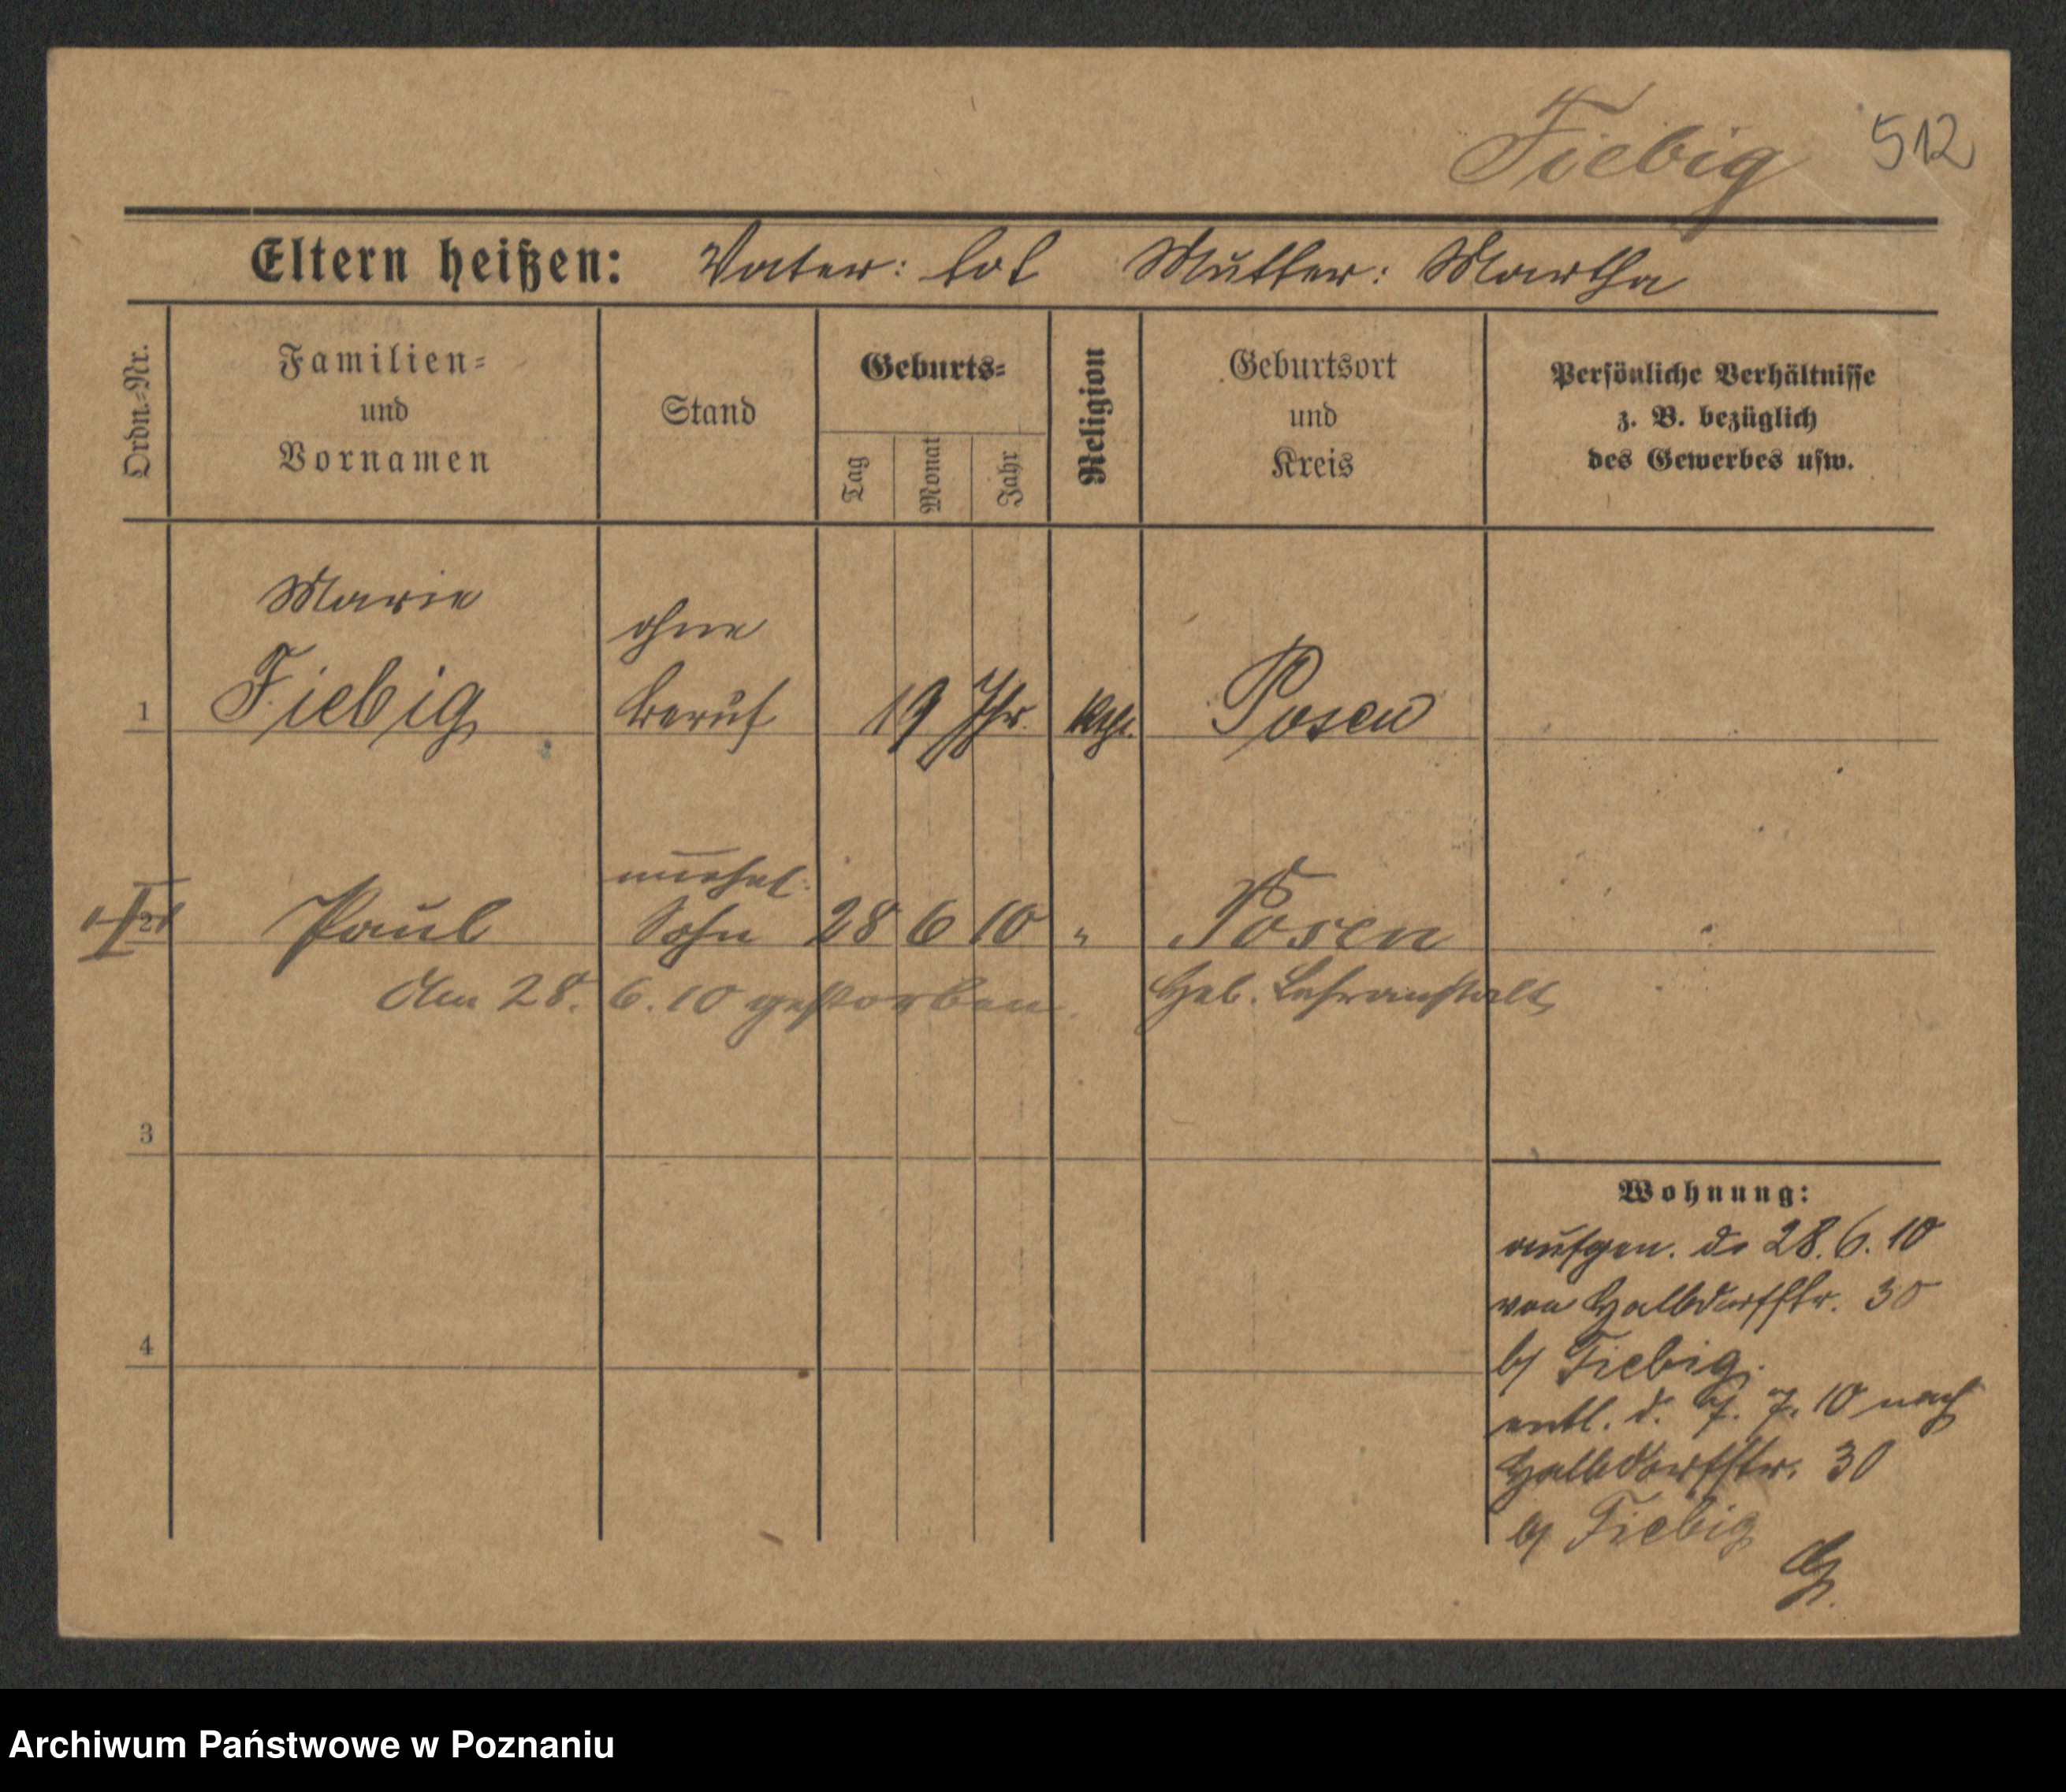 Fiebig 512
Eltern heißen: Vater: tot Mutter: Martha
Ordn.-Nr.
Familien-
und
Vornamen
Stand
Geburts-
Tag
Monat
Jahr
Religion
Geburtsort
und
Kreis
Persönliche Verhältnisse
z. B. bezüglich
des Gewerbes usw.
Marie
ohne
1 Fiebig Beruf 19 Jhr. Kth. Posen
unehel.
Paul Sohn 28 6 10 " Posen
Am 28. 6. 10 gestorben. Heb. Lehranstalt
3
Wohnung:
aufgen. d. 28. 6. 10
von Halbdorfstr. 30
b/ Fiebig.
4
entl. d. 7. 7. 10 nach
Halbdorfstr. 30
b/ Fiebig
Archiwum Państwowe w Poznaniu